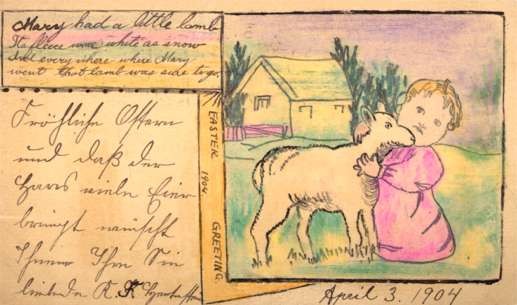 Mary had a little lamb
Its fleece was white as snow
And every where where Mary
went that lamb was side to go.
Fröhliche Ostern
und daß der
Haas viele Eier
bringt wünscht
Ihnen Ihr Sie
liebender R.
EASTER 1904. GREETING.
April 3. 1904